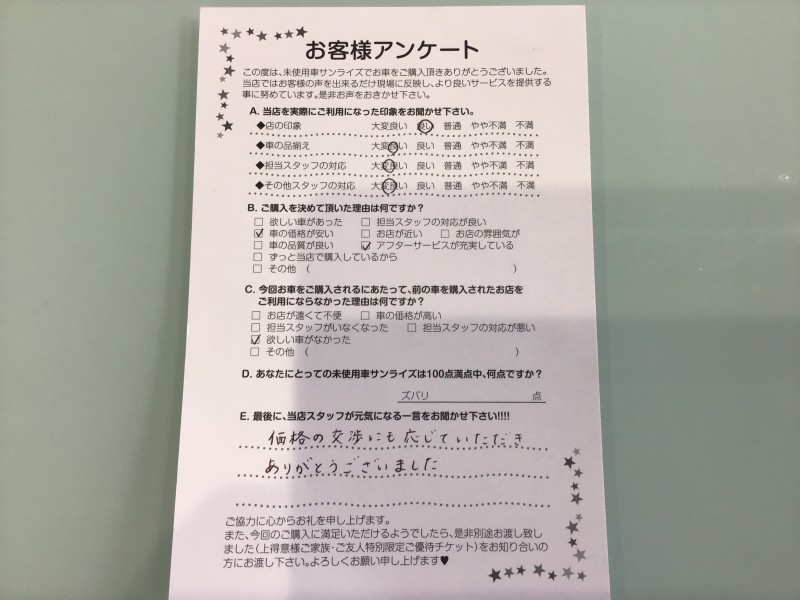 お客様アンケート
この度は、未使用車サンライズでお車をご購入頂きありがとうございました。
当店ではお客様の声を出来るだけ現場に反映し、より良いサービスを提供する
事に努めています。是非お声をおきかせ下さい。
A. 当店を実際にご利用になった印象をお聞かせ下さい。
◆店の印象 大変良い 良い 普通 やや不満 不満
◆車の品揃え 大変良い 良い 普通 やや不満 不満
◆担当スタッフの対応 大変良い 良い 普通 やや不満 不満
◆その他スタッフの対応 大変良い 良い 普通 やや不満 不満
B. ご購入を決めて頂いた理由は何ですか?
□ 欲しい車があった □ 担当スタッフの対応が良い
☑ 車の価格が安い □ お店が近い □ お店の雰囲気が
□ 車の品質が良い ☑ アフターサービスが充実している
□ ずっと当店で購入しているから
□ その他 ( )
C. 今回お車をご購入されるにあたって、前の車を購入されたお店を
ご利用にならなかった理由は何ですか?
□ お店が遠くて不便 □ 車の価格が高い
□ 担当スタッフがいなくなった □ 担当スタッフの対応が悪い
☑ 欲しい車がなかった
□ その他 ( )
D. あなたにとっての未使用車サンライズは100点満点中、何点ですか?
ズバリ 点
E. 最後に、当店スタッフが元気になる一言をお聞かせ下さい!!!!
価格の交渉にも応じていただき
ありがとうございました
ご協力に心からお礼を申し上げます。
また、今回のご購入に満足いただけるようでしたら、是非別途お渡し致し
ました(上得意様ご家族・ご友人特別限定ご優待チケット)をお知り合いの
方にお渡し下さい。よろしくお願い申し上げます♥